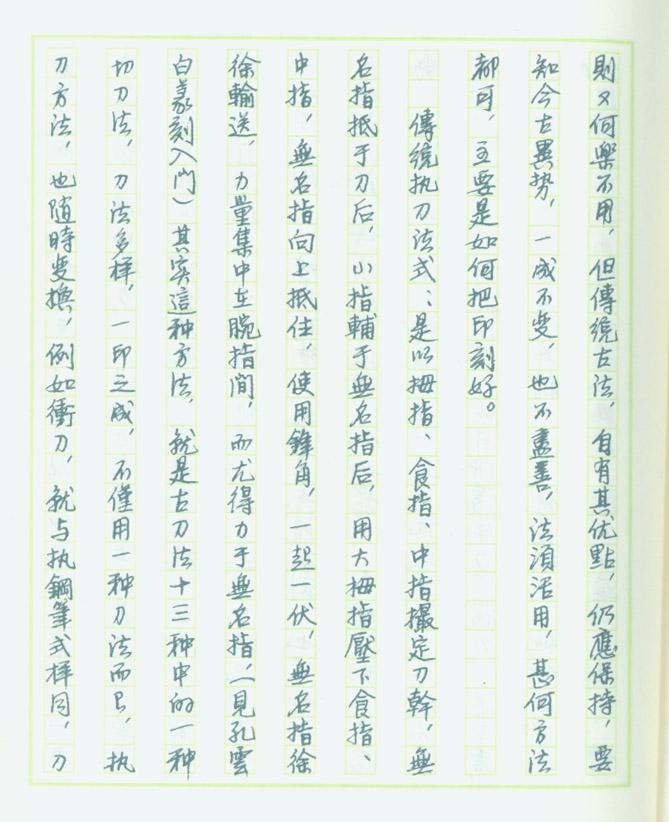 則又何樂不用，但傳統古法，自有其优點，仍應保持，要
知今古異势，一成不变，也不盡善，法須活用，甚何方法
都可，主要是如何把印刻好。
傳統执刀法式：是以拇指、食指、中指撮定刀幹，無
名指抵于刀后，小指輔于無名指后，用大拇指壓下食指、
中指，無名指向上抵住，使用鋒角，一起一伏，無名指徐
徐輸送，力量集中在腕指間，而尤得力于無名指，（見孔雲
白篆刻入门）其实這种方法，就是古刀法十三种中的一种
切刀法，刀法多样，一印之成，不僅用一种刀法而已，执
刀方法，也随時变换，例如衝刀，就与执鋼筆式样同，刀